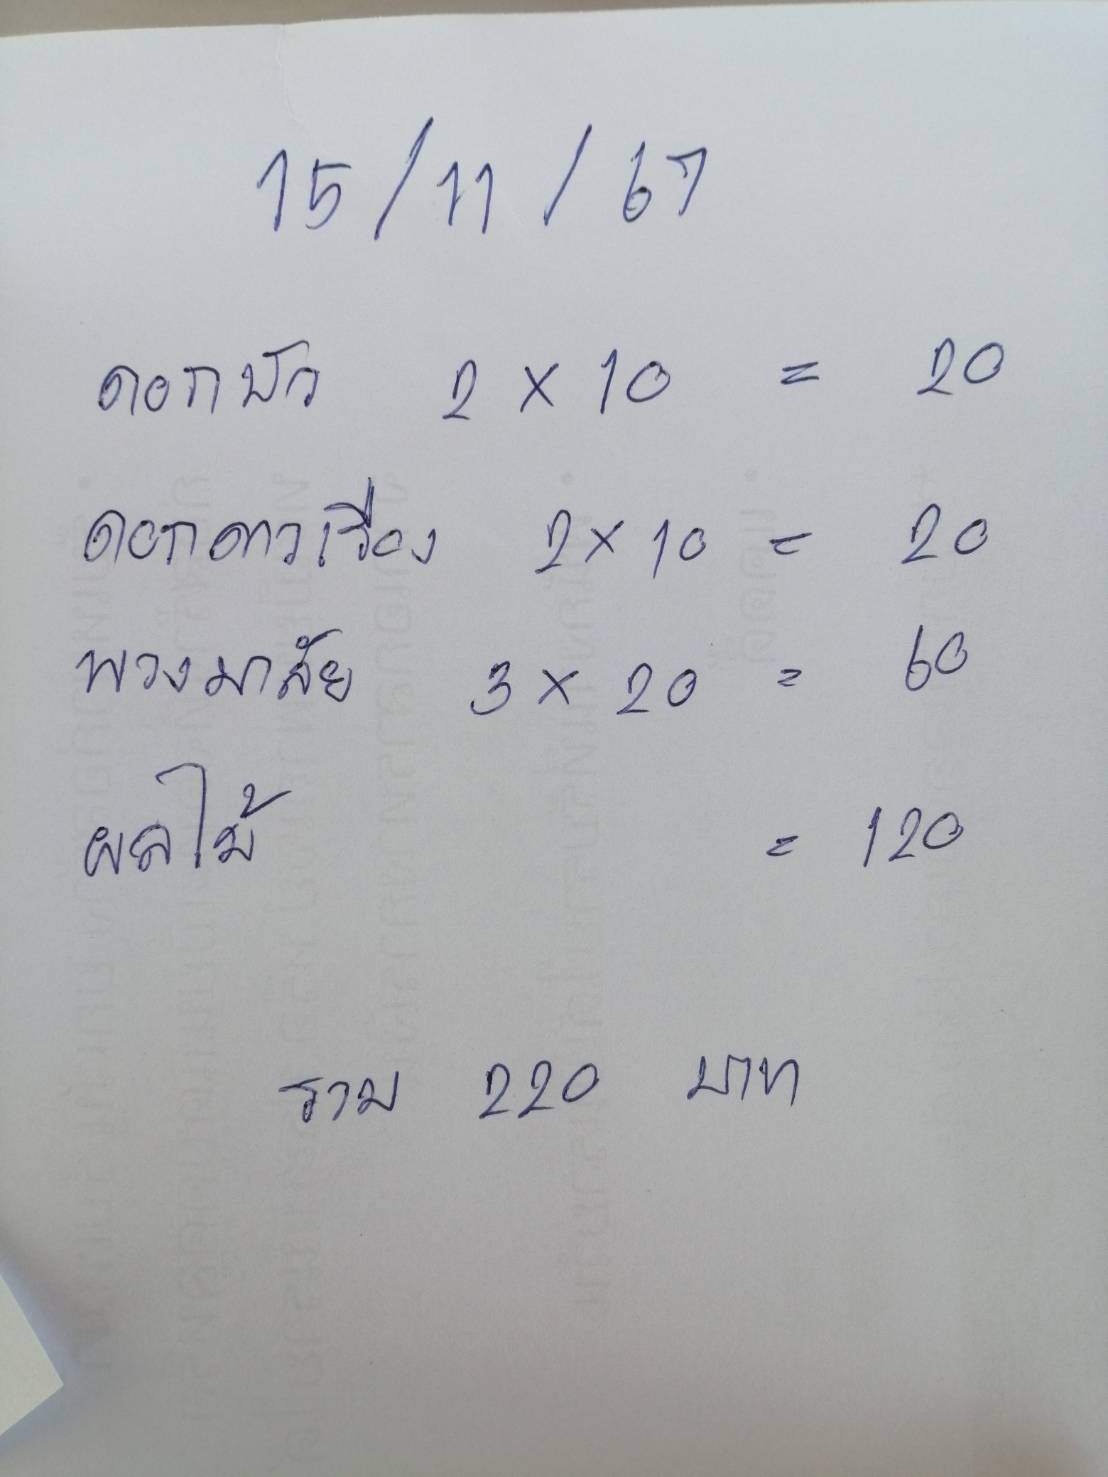 15/11/67
ดอกบัว 2 × 10 = 20
ดอกดาวเรือง 2 × 10 = 20
พวงมาลัย 3 × 20 = 60
ผลไม้ = 120
รวม 220 บาท